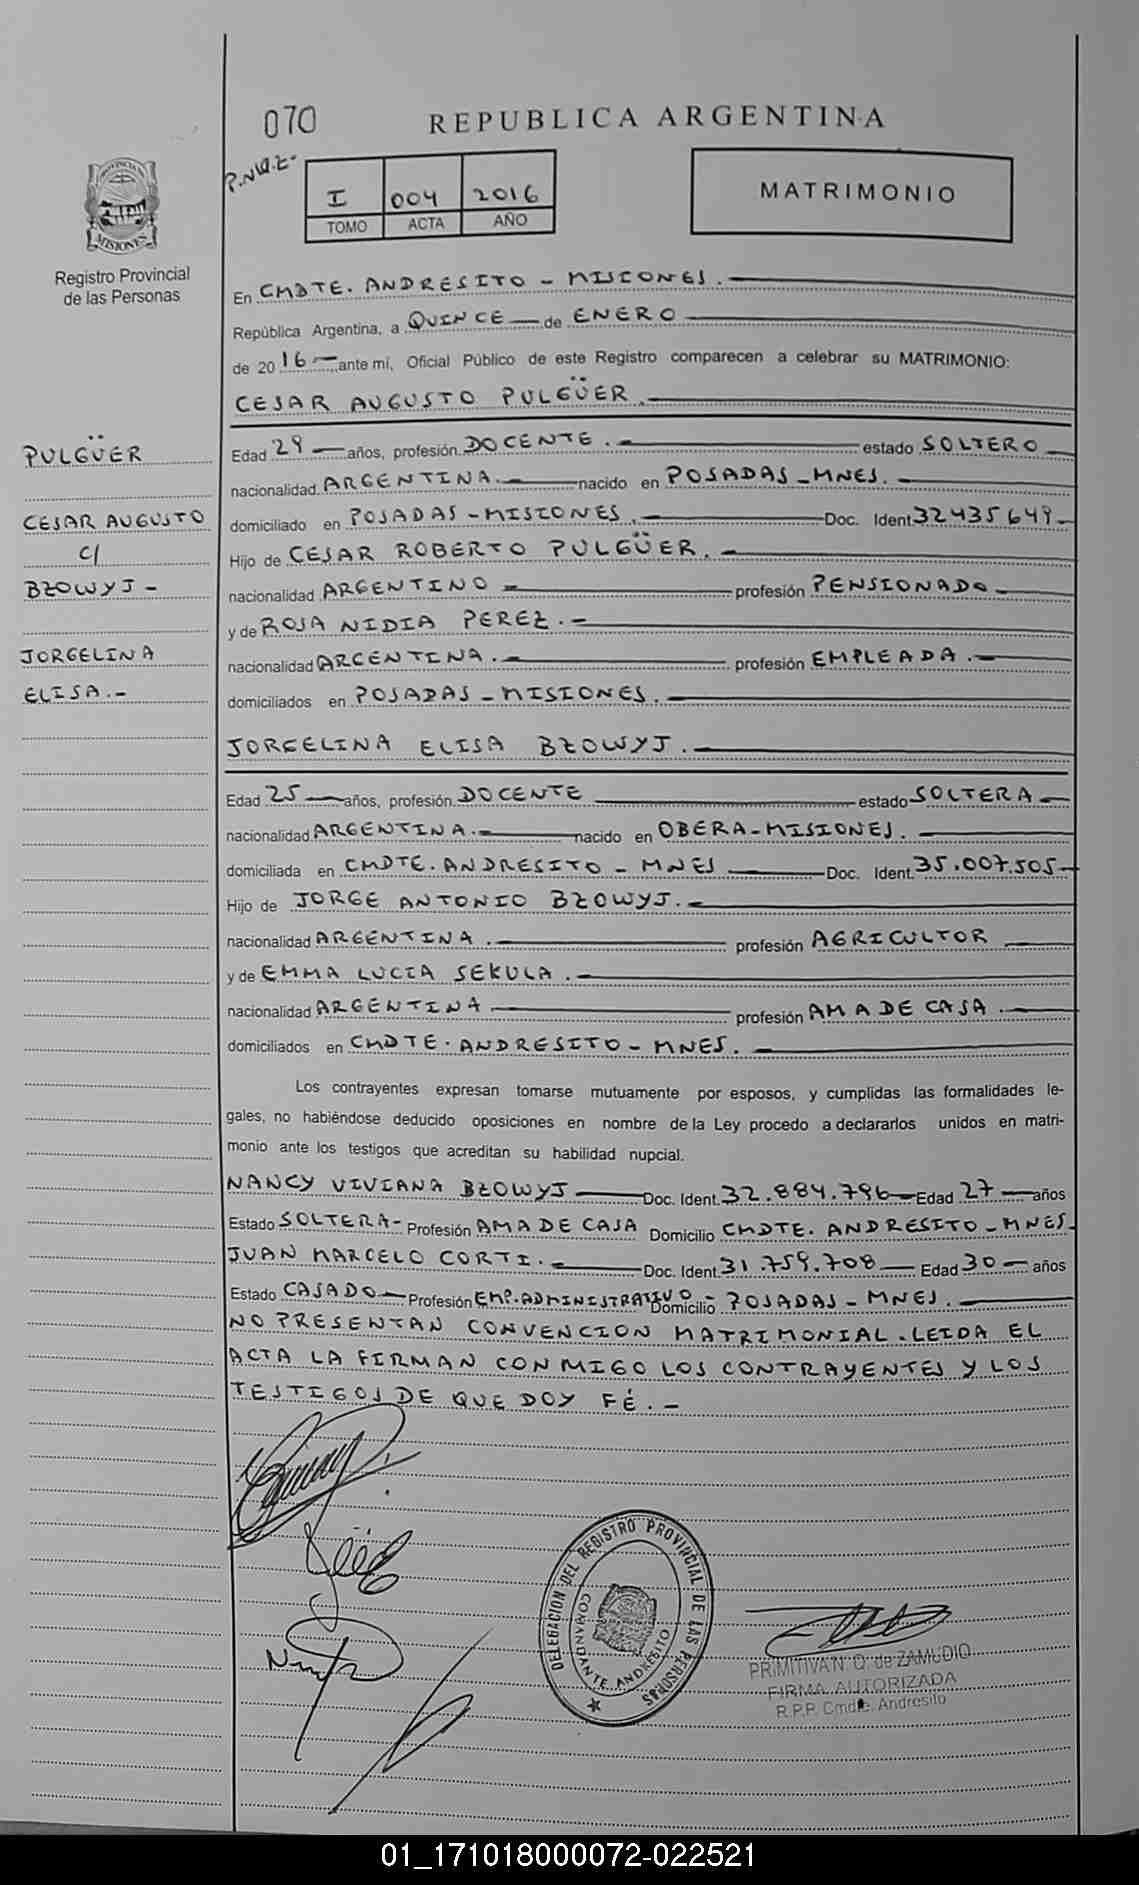 070
REPUBLICA ARGENTINA
I 004 2016
TOMO ACTA AÑO
MATRIMONIO
PROVINCIA
MISIONES
Registro Provincial
de las Personas
En CMDTE. ANDRESITO - MISIONES.
República Argentina, a QUINCE de ENERO
de 2016 ante mí, Oficial Público de este Registro comparecen a celebrar su MATRIMONIO:
CESAR AUGUSTO PULGÜER.
PULGÜER
CESAR AUGUSTO
C/
BZOWYJ -
JORGELINA
ELISA.-
Edad 29 años, profesión DOCENTE. estado SOLTERO
nacionalidad ARGENTINA. nacido en POSADAS - MNES.
domiciliado en POSADAS - MISIONES. Doc. Ident. 32435649
Hijo de CESAR ROBERTO PULGÜER.
nacionalidad ARGENTINO profesión PENSIONADO
y de ROSA NIDIA PEREZ.
nacionalidad ARGENTINA. profesión EMPLEADA.
domiciliados en POSADAS - MISIONES.
JORGELINA ELISA BZOWYJ.
Edad 25 años, profesión DOCENTE estado SOLTERA
nacionalidad ARGENTINA. nacido en OBERA - MISIONES.
domiciliada en CMDTE. ANDRESITO - MNES Doc. Ident. 35.007.505
Hijo de JORGE ANTONIO BZOWYJ.
nacionalidad ARGENTINA. profesión AGRICULTOR
y de EMMA LUCIA SEKULA.
nacionalidad ARGENTINA profesión AMA DE CASA.
domiciliados en CMDTE. ANDRESITO - MNES.
Los contrayentes expresan tomarse mutuamente por esposos, y cumplidas las formalidades le-
gales, no habiéndose deducido oposiciones en nombre de la Ley procedo a declararlos unidos en matri-
monio ante los testigos que acreditan su habilidad nupcial.
NANCY VIVIANA BZOWYJ Doc. Ident. 32.884.796 Edad 27 años
Estado SOLTERA - Profesión AMA DE CASA Domicilio CMDTE. ANDRESITO - MNES.
JUAN MARCELO CORTI. Doc. Ident. 31.759.708 Edad 30 años
Estado CASADO Profesión EMP. ADMINISTRATIVO Domicilio POSADAS - MNES.
NO PRESENTAN CONVENCION MATRIMONIAL. LEIDA EL
ACTA LA FIRMAN CONMIGO LOS CONTRAYENTES Y LOS
TESTIGOS DE QUE DOY FÉ.-
DELEGACION DEL REGISTRO PROVINCIAL DE LAS PERSONAS
COMANDANTE ANDRESITO
PRIMITIVA N. Q. de ZAMUDIO
FIRMA AUTORIZADA
R.P.P. Cmdte. Andresito
01_171018000072-022521